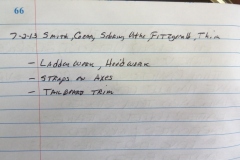 66
7-2-13 Smith, Conn, Fitzgerald, Thim
- Ladder work, Hoedwork
- Straps on Axes
- Tailboard Trim